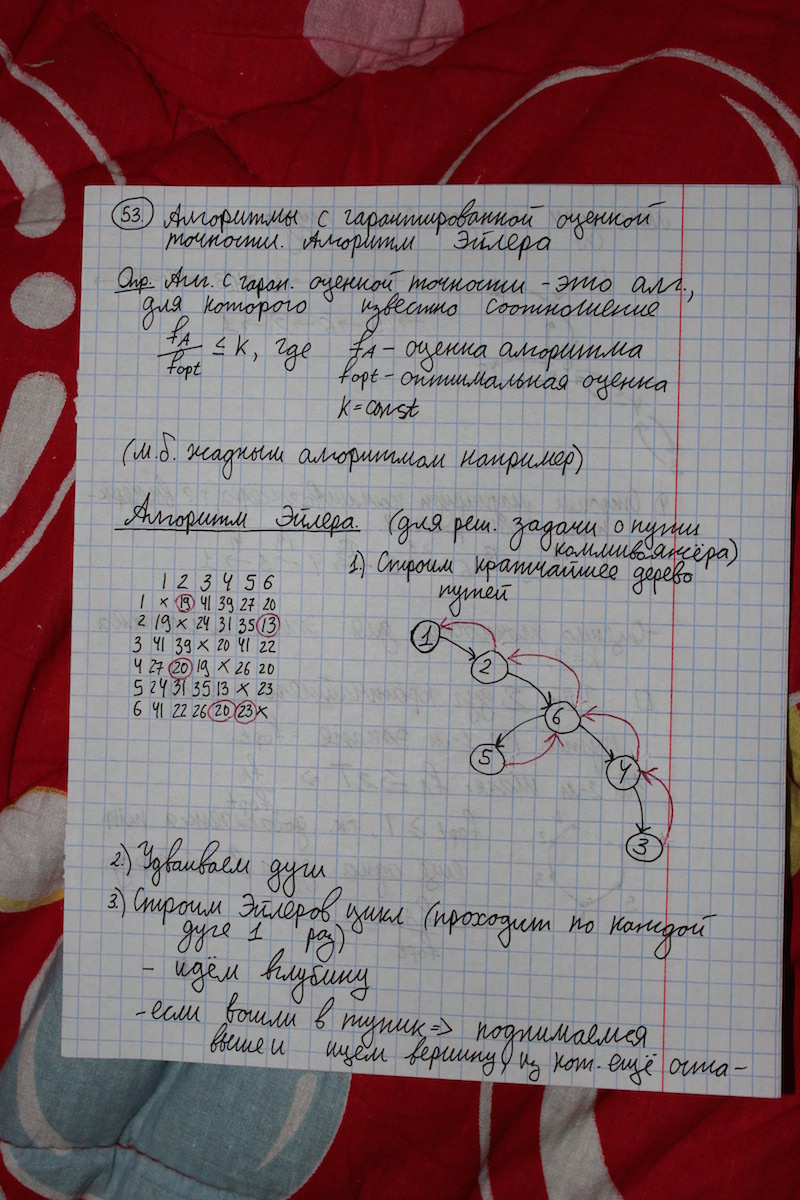 53. Алгоритмы с гарантированной оценкой
точности. Алгоритм Эйлера
Опр. Алг. с гаран. оценкой точности - это алг.,
для которого известно соотношение
fA/fopt ≤ K, где fA – оценка алгоритма
fopt – оптимальная оценка
K = const
(м.б. жадным алгоритмом например)
Алгоритм Эйлера. (для реш. задачи о пути
коммивояжёра)
1.) Строим кратчайшее дерево
путей
1 2 3 4 5 6
1 × 19 41 39 27 20
2 19 × 24 31 35 13
3 41 39 × 20 41 22
4 27 20 19 × 26 20
5 24 31 35 13 × 23
6 41 22 26 20 23 ×
1
2
6
5
4
3
2.) Удваиваем дуги
3.) Строим Эйлеров цикл (проходит по каждой
дуге 1 раз)
- идём вглубину
- если вошли в тупик => поднимаемся
выше и ищем вершину, из кот. ещё оста-